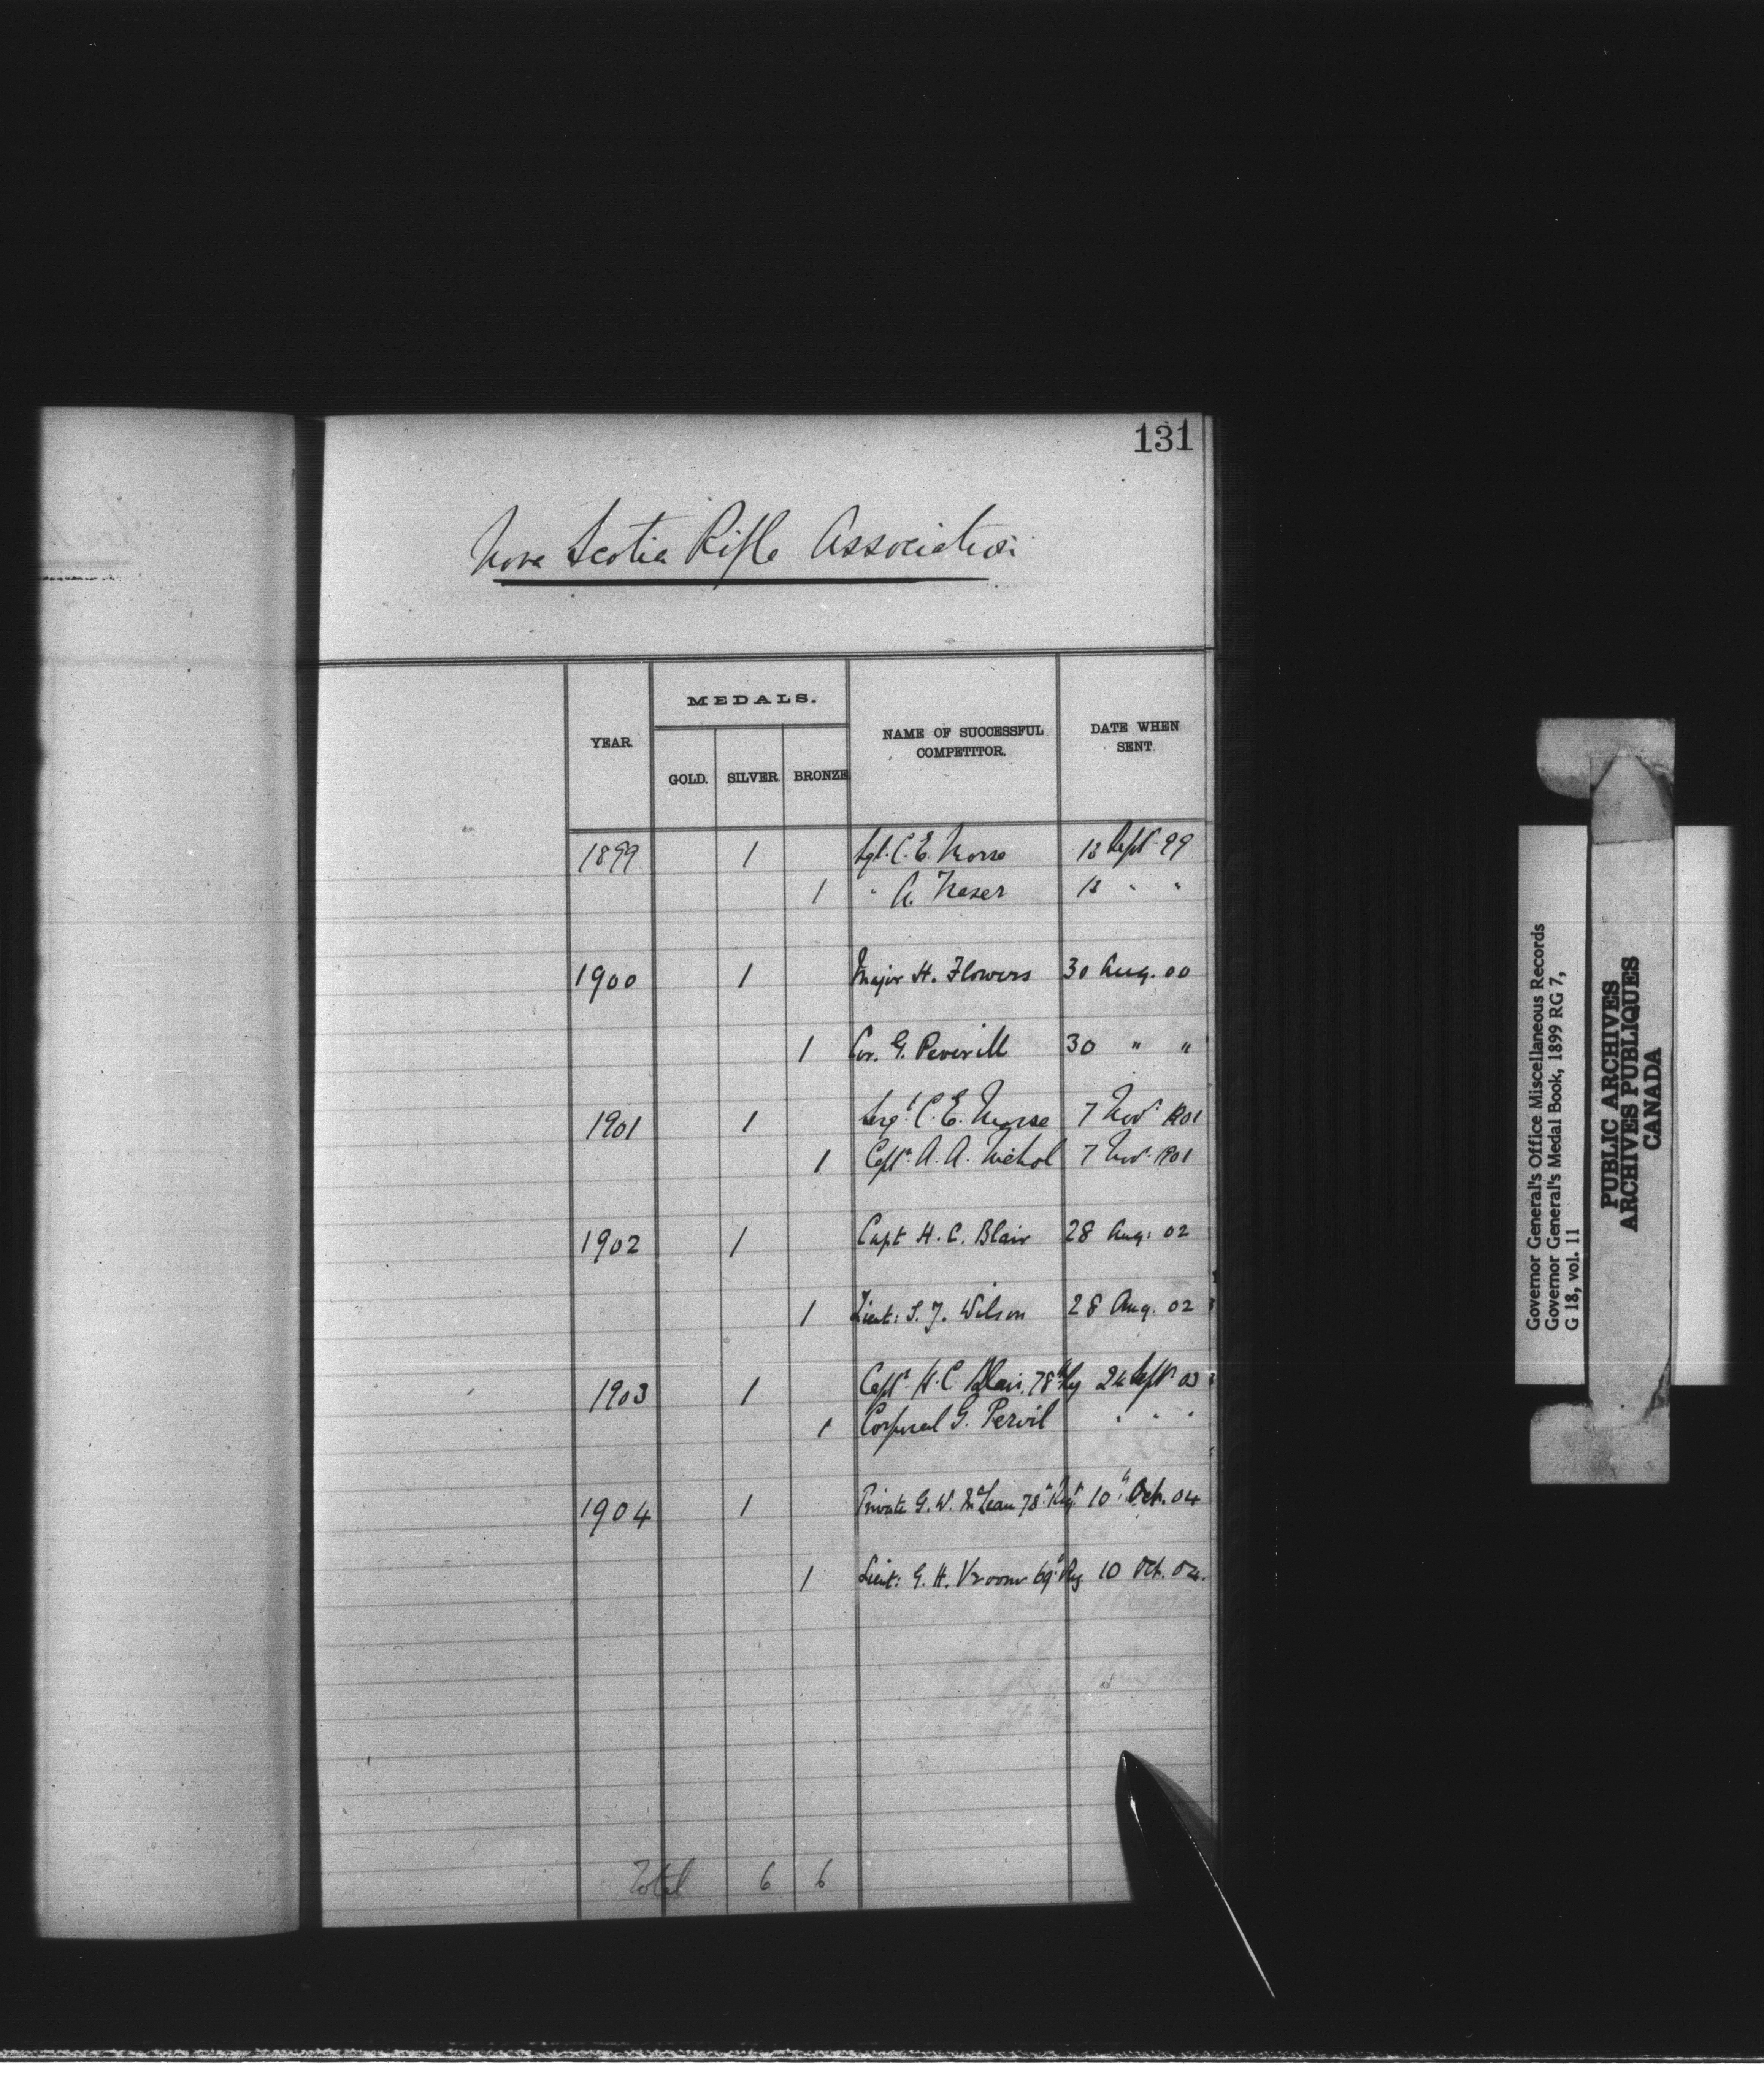 131
Nova Scotia Rifle Association
MEDALS.
YEAR
NAME OF SUCCESSFUL COMPETITOR.
DATE WHEN SENT.
GOLD. SILVER. BRONZE
1899 1 Sgt. C. E. Morse 13 Sept. 99
1 " A. Fraser 13 " "
1900 1 Major H. Flowers 30 Aug. 00
1 Cor. G. Peverill 30 " "
1901 1 Sergt. C. E. Morse 7 Nov. 1901
1 Captn. A. A. Nichol 7 Nov. 1901
1902 1 Capt H. C. Blair 28 Aug: 02
1 Lieut: S. J. Wilson 28 Aug. 02
1903 1 Capt. H. C Blair, 78th Rg 24 Sept 03
1 Corporal G. Pervil " " "
1904 1 Private G. W. McLean 78th Regt 10th Oct. 04
1 Lieut: G. H. Vroom 69th Reg 10 Oct. 04.
Total 6 6
Governor General's Office Miscellaneous Records
Governor General's Medal Book, 1899 RG 7,
G 18, vol. 11
PUBLIC ARCHIVES
ARCHIVES PUBLIQUES
CANADA